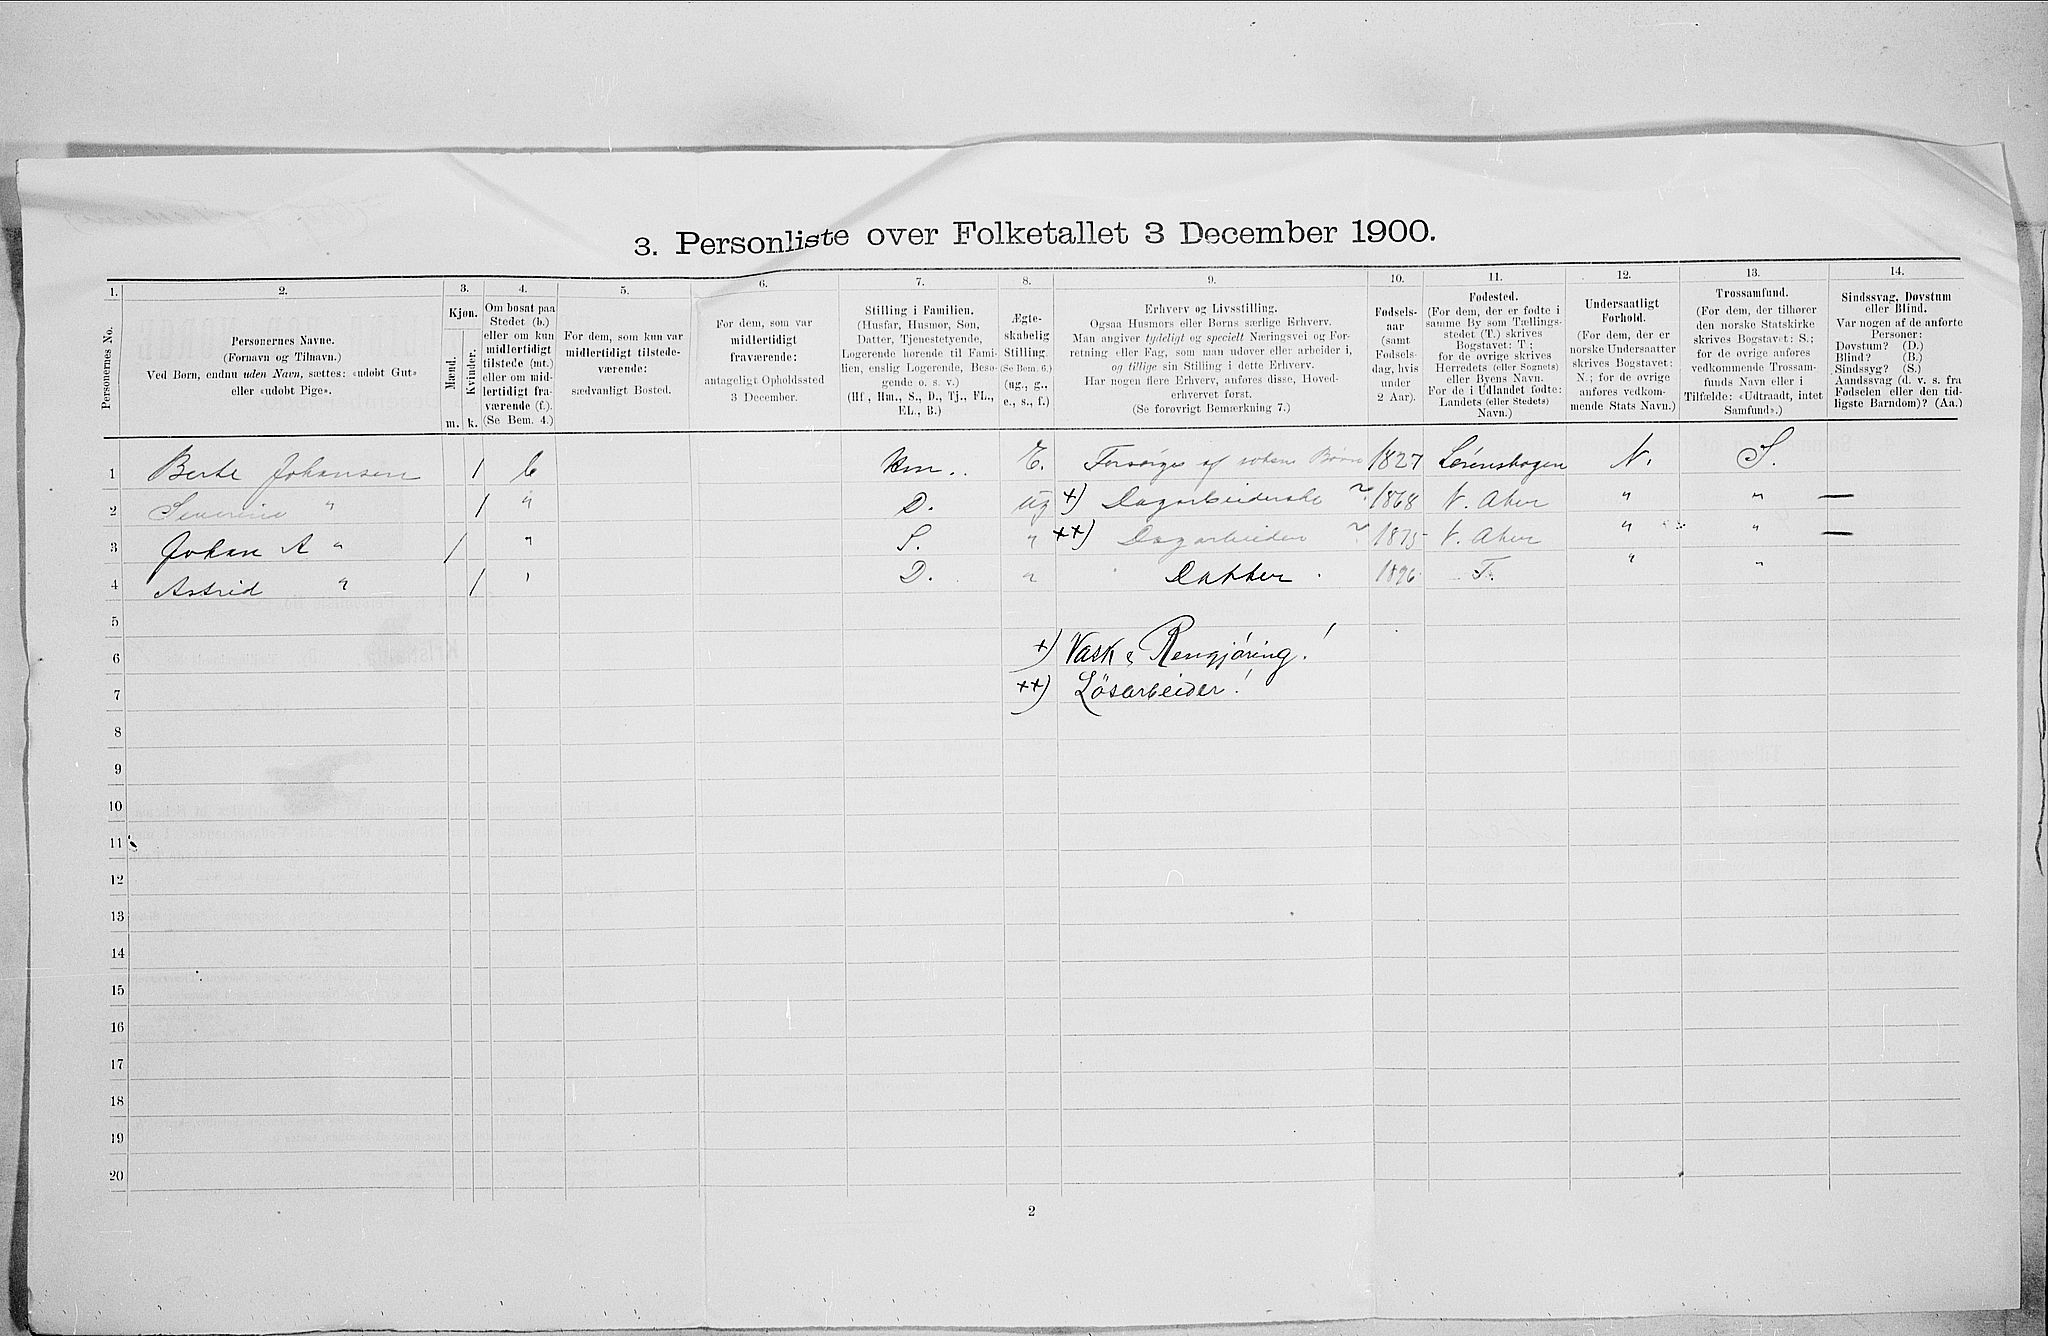 3. Personliste over Folketallet 3 December 1900.
1. 2. 3. 4. 5. 6. 7. 8. 9. 10. 11. 12. 13. 14.
Personernes No.
Personernes Navne.
(Fornavn og Tilnavn.)
Ved Børn, endnu uden Navn, sættes: «udøbt Gut»
eller «udøbt Pige».
Kjøn.
Mænd.
Kvinder.
m. k.
Om bosat paa
Stedet (b.)
eller om kun
midlertidigt
tilstede (mt.)
eller om mid-
lertidigt fra-
værende (f.)
(Se Bem. 4.)
For dem, som kun var
midlertidigt tilstede-
værende:
sædvanligt Bosted.
For dem, som var
midlertidigt
fraværende:
antageligt Opholdssted
3 December.
Stilling i Familien.
(Husfar, Husmor, Søn,
Datter, Tjenestetyende,
Logerende hørende til Fami-
lien, enslig Logerende, Besø-
gende o. s. v.)
(Hf., Hm., S., D., Tj., FL.,
EL., B.)
Ægte-
skabelig
Stilling.
(Se Bem. 6.)
(ug., g.,
e., s., f.)
Erhverv og Livsstilling.
Ogsaa Husmors eller Børns særlige Erhverv.
Man angiver tydeligt og specielt Næringsvei og For-
retning eller Fag, som man udøver eller arbeider i,
og tillige sin Stilling i dette Erhverv.
Har nogen flere Erhverv, anføres disse, Hoved-
erhvervet først.
(Se forøvrigt Bemærkning 7.)
Fødsels-
aar
(samt
Fødsels-
dag, hvis
under
2 Aar).
Fødested.
(For dem, der er fødte i
samme By som Tællings-
stedet (T.) skrives
Bogstavet: T;
for de øvrige skrives
Herredets (eller Sognets)
eller Byens Navn.
For de i Udlandet fødte:
Landets (eller Stedets)
Navn.)
Undersaatligt
Forhold.
(For dem, der er
norske Undersaatter
skrives Bogstavet:
N.; for de øvrige
anføres vedkom-
mende Stats Navn.)
Trossamfund.
(For dem, der tilhører
den norske Statskirke
skrives Bogstavet: S.;
for de øvrige anføres
vedkommende Trossam-
funds Navn eller i
Tilfælde: «Udtraadt, intet
Samfund».)
Sindssvag, Døvstum
eller Blind.
Var nogen af de anførte
Personer:
Døvstum? (D.)
Blind? (B.)
Sindssyg? (S.)
Aandssvag (d. v. s. fra
Fødselen eller den tid-
ligste Barndom)? (Aa.)
1 Berte Johansen 1 b Hm. E. Forsørges af Børn 1827 Lørenskogen N. S.
2 Severine " 1 " D. ug +) Dagarbeiderske ? 1868 V. Aker " " —
3 Johan A " 1 " S. " ++) Dagarbeider ? 1875 V. Aker " " —
4 Astrid " 1 " D. " Datter. 1896 T. " "
5
6 +) Vask & Rengjøring!
7 ++) Løsarbeider!
8
9
10
11
12
13
14
15
16
17
18
19
20
2